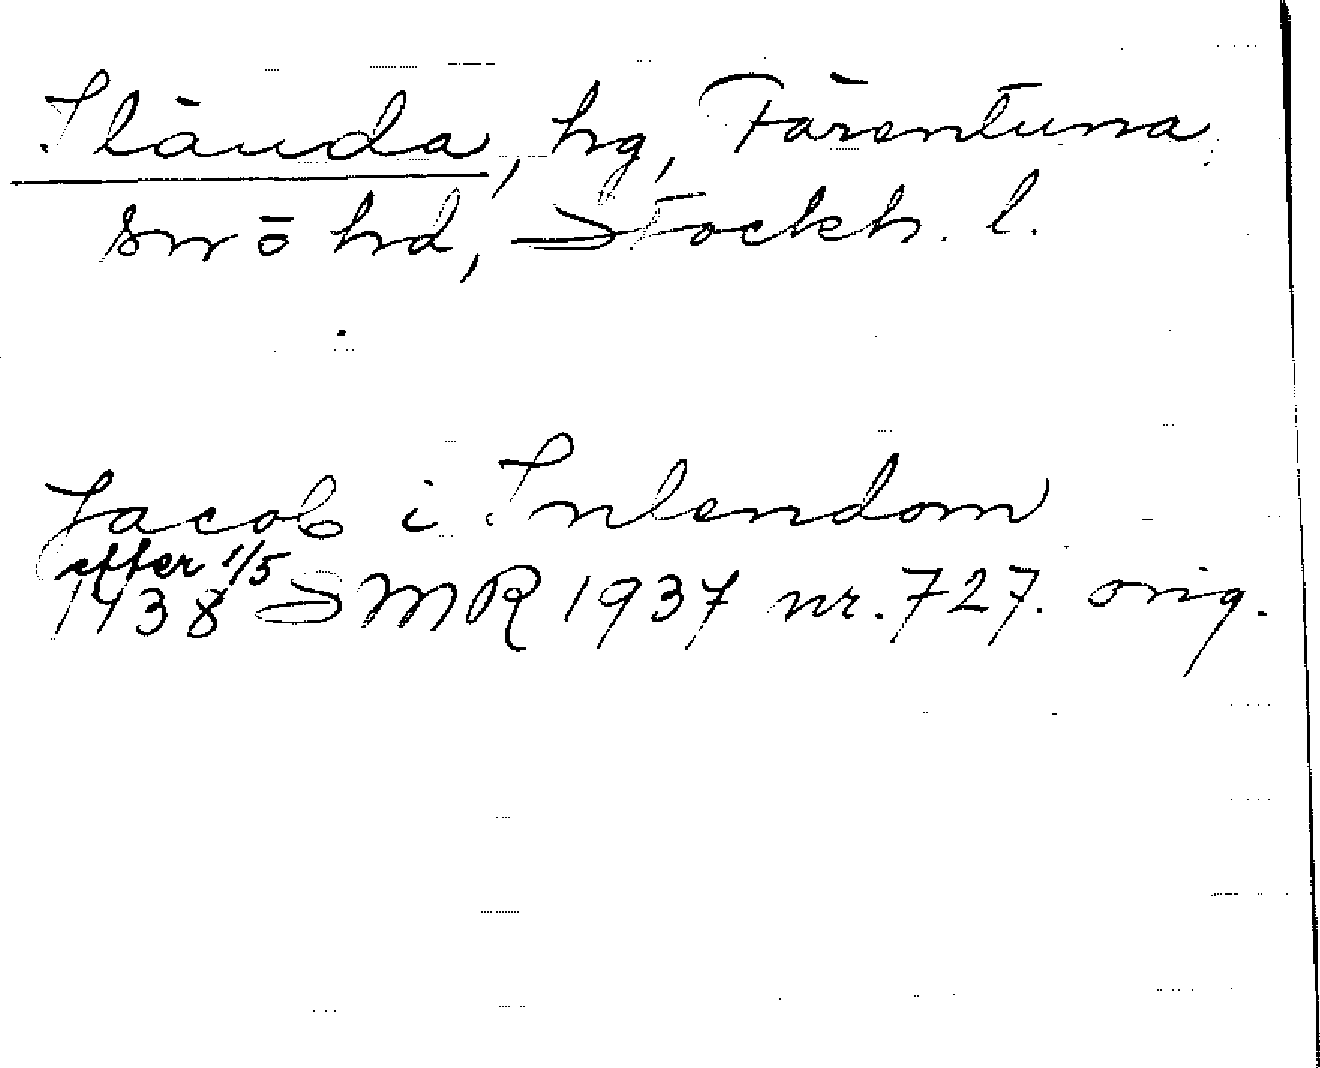 Ilända, hg, Färentuna
sn o hd, Stockh. l.
Jacob i Inlendom
efter 1/5
1438 SMR 1937 nr. 727. orig.